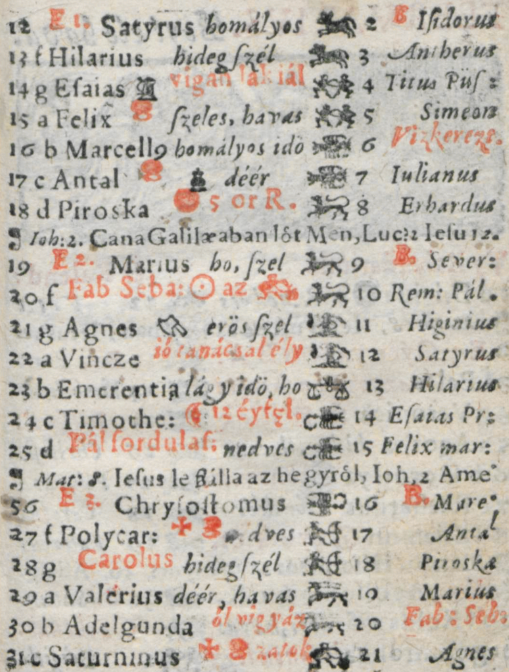 12 E 1. Satyrus homályos 2 B Isidorus
13 f Hilarius hideg szél 3 Antherus
14 g Esaias vigan lak iál 4 Titus Püs:
15 a Felix szeles, havas 5 Simeon
16 b Marcell9 homályos idö 6 Vizkerezs.
17 c Antal déér 7 Iulianus
18 d Piroska 5 or R. 8 Erhardus
Ioh: 2. Cana Galilæaban lôt Men, Luc: 2 Iesu 12.
19 E 2. Marius ho, szel 9 B. Sever:
20 f Fab Seba: az 10 Rem: Pál.
21 g Agnes erös szél 11 Higinius
22 a Vincze ió tanácsal ély 12 Satyrus
23 b Emerentia lágy idö, ho 13 Hilarius
24 c Timothe: 12 14 Esaias Pr:
25 d Pál fordulas: nedves 15 Felix mar:
Mar: 8. Iesus le ßálla az hegyrôl, Ioh, 2 Ame
56 E 3. Chrysostomus 16 B. Mare
27 f Polycar: dves 17 Antal
28 g Carolus hideg szél 18 Piroska
29 a Valerius déér, havas 19 Marius
30 b Adelgunda öl vigyáz 20 Fab: Seb:
31 c Saturninus 21 Agnes